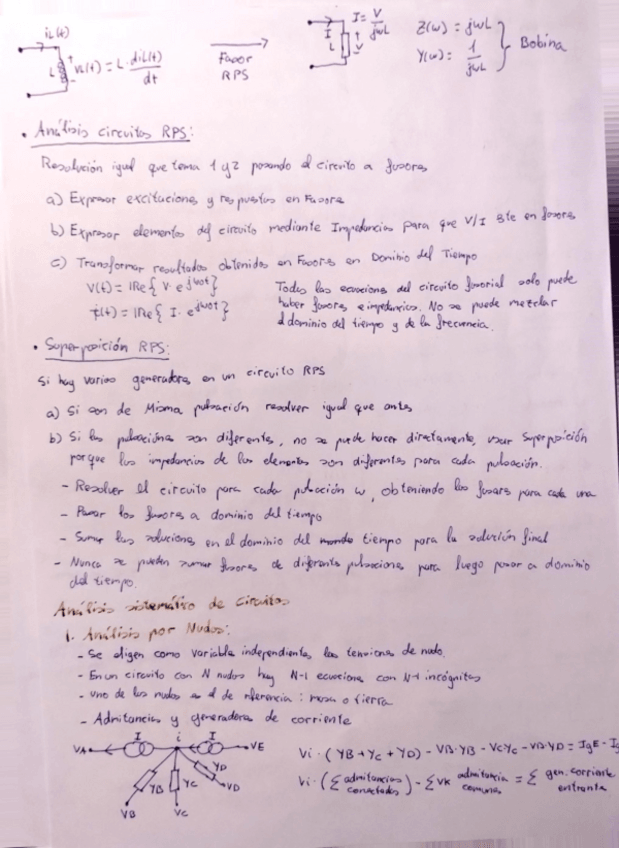 iL(t)
L + VL(t) = L · diL(t)/dt -
Fasor
RPS
I = V/jwL
I L + V -
Z(w) = jwL
Y(w) = 1/jwL
} Bobina
• Análisis circuitos RPS:
Resolución igual que tema 1 y 2 pasando el circuito a fasores
a) Expresar excitaciones y respuestas en Fasores
b) Expresar elementos del circuito mediante Impedancias para que V/I este en fasores
c) Transformar resultados obtenidos en Fasores en Dominio del Tiempo
V(t) = Re{ V · e^jwot }
i(t) = Re{ I · e^jwot }
Todas las ecuaciones del circuito fasorial solo puede
haber fasores e impedancias. No se puede mezclar
el dominio del tiempo y de la frecuencia.
• Superposición RPS:
Si hay varios generadores en un circuito RPS
a) Si son de Misma pulsación resolver igual que antes
b) Si las pulsaciones son diferentes, no se puede hacer directamente, usar Superposición
porque las impedancias de los elementos son diferentes para cada pulsación.
- Resolver el circuito para cada pulsación w, obteniendo los fasores para cada una
- Pasar los fasores a dominio del tiempo
- Sumar las soluciones en el dominio del tiempo para la solución final
- Nunca se pueden sumar fasores de diferentes pulsaciones para luego pasar a dominio
del tiempo.
Análisis sistemático de Circuitos
1. Análisis por Nudos:
- Se eligen como variable independientes las tensiones de nudo.
- En un circuito con N nudos hay N-1 ecuaciones con N-1 incógnitas
- Uno de los nudos es el de referencia: masa o tierra
- Admitancias y generadores de corriente
VA I i I VE
YB YC YD
VB VC VD
Vi · (YB + YC + YD) - VB·YB - VCYC - VD·YD = IgE - Ig
Vi · (Σ admitancias conectadas) - ΣVK admitancia comunes = Σ gen. corriente entrante